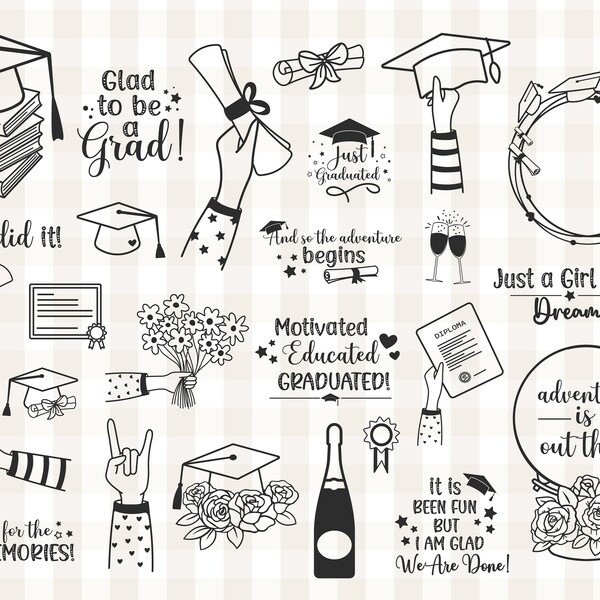 Glad
to be
a
Grad!
Just
Graduated
did it!
And so the adventure
begins
Just a Girl
Dream
Motivated
Educated
GRADUATED!
DIPLOMA
is
out
for the
MEMORIES!
it is
BEEN FUN
BUT
I AM GLAD
We Are Done!